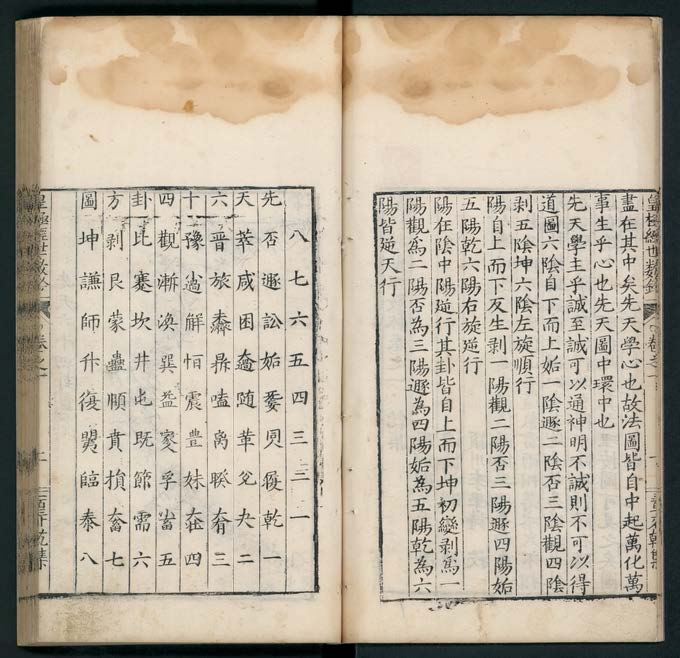 盡在其中矣先天學心也故法圖皆自中起萬化萬
事生乎心也先天圖中環中也
先天學主乎誠至誠可以通神明不誠則不可以得
道圖六陰自下而上姤一陰遯二陰否三陰觀四陰
剥五陰坤六陰左旋順行
陽自上而下反生剥一陽觀二陽否三陽遯四陽姤
五陽乾六陽右旋逆行
陽在陰中陽逆行其卦皆自上而下坤初變剥爲一
陽觀爲二陽否為三陽遯為四陽姤為五陽乾為六
陽皆逆天行
八七六五四三二一
先否遯訟姤履乾一
天萃咸困隨革兌夬二
六晋旅鼎嗑离睽三
十豫解恒震豊妹四
四觀漸渙巽益孚五
卦比蹇坎井屯既節需六
方剥艮蒙蠱頤賁損七
圖坤謙師升復臨泰八